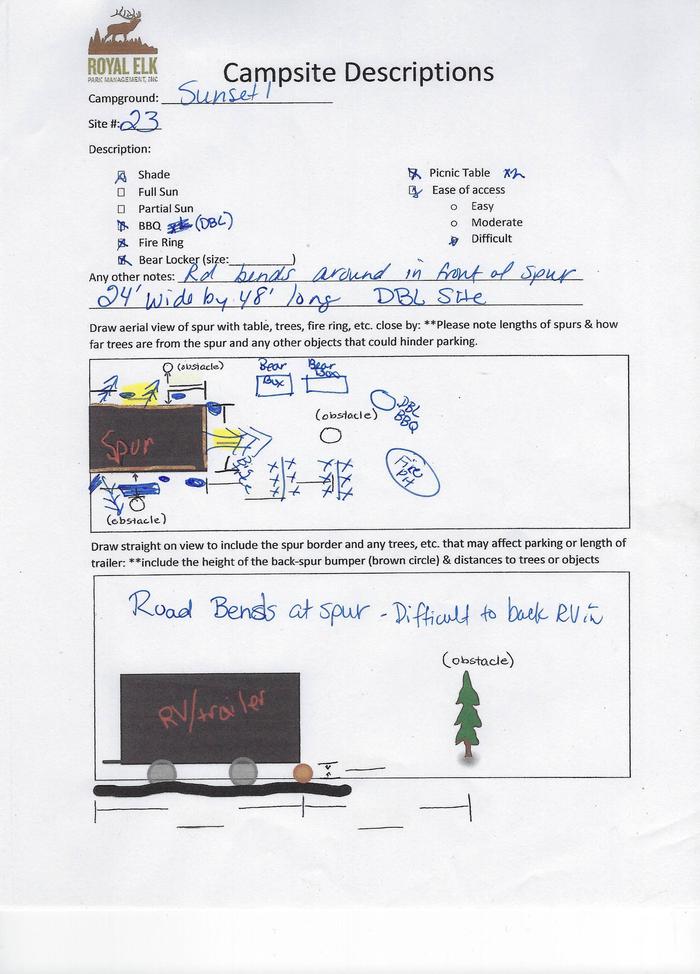 ROYAL ELK
PARK MANAGEMENT, INC
Campsite Descriptions
Campground: Sunset
Site #: 23
Description:
Shade
Full Sun
Partial Sun
BBQ (DBL)
Fire Ring
Bear Locker (size:__________)
Picnic Table x2
Ease of access
Easy
Moderate
Difficult
Any other notes: Rd bends around in front of spur
24' Wide by 48' long DBL Site
Draw aerial view of spur with table, trees, fire ring, etc. close by: **Please note lengths of spurs & how
far trees are from the spur and any other objects that could hinder parking.
(obstacle)
Bear Box
Bear Box
DBL BBQ
(obstacle)
Spur
Fire Pit
(obstacle)
Draw straight on view to include the spur border and any trees, etc. that may affect parking or length of
trailer: **include the height of the back-spur bumper (brown circle) & distances to trees or objects
Road Bends at spur - Difficult to back RV in
(obstacle)
RV/trailer